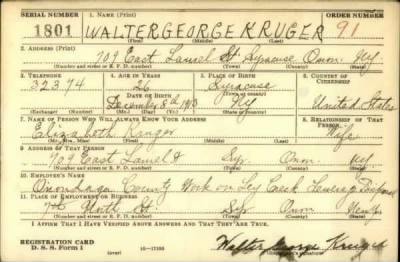 SERIAL NUMBER 1. NAME (Print) ORDER NUMBER
1801 WALTER GEORGE KRUGER 91
(First) (Middle) (Last)
2. ADDRESS (Print)
709 East Laurel St Syracuse Onon. NY
(Number and street or R. F. D. number) (Town) (County) (State)
3. TELEPHONE 4. AGE IN YEARS 5. PLACE OF BIRTH 6. COUNTRY OF CITIZENSHIP
32374 26 Syracuse
DATE OF BIRTH (Town or county)
December 8th 1913 NY United States
(Exchange) (Number) (Mo.) (Day) (Yr.) (State or country)
7. NAME OF PERSON WHO WILL ALWAYS KNOW YOUR ADDRESS 8. RELATIONSHIP OF THAT PERSON
Elizabeth Kruger Wife
(Mr., Mrs., Miss) (First) (Middle) (Last)
9. ADDRESS OF THAT PERSON
709 East Laurel St Syr. Onon. NY
(Number and street or R. F. D. number) (Town) (County) (State)
10. EMPLOYER'S NAME
Onondaga County Work on Ley Creek
11. PLACE OF EMPLOYMENT OR BUSINESS
7th North St. Syr Onon
(Number and street or R. F. D. number) (Town) (County) (State)
I AFFIRM THAT I HAVE VERIFIED ABOVE ANSWERS AND THAT THEY ARE TRUE.
REGISTRATION CARD
D. S. S. Form 1 (over) 16—17105 Walter George Kruger